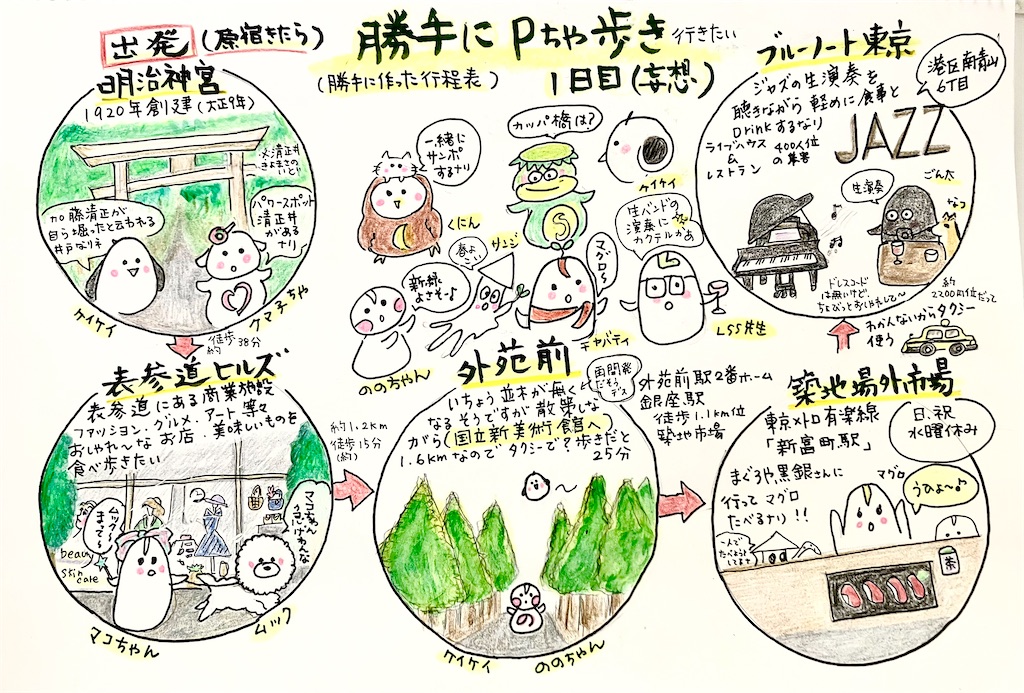 出発
(原宿きたら)
勝手にPちゃ歩き
行きたい
(勝手に作った行程表)
1日目(妄想)
明治神宮
1920年創建(大正9年)
※清正井
きよまさの
いど
加藤清正が
自ら掘ったと云われる
井戸なりネ
パワースポット
清正井
があるナリ
ケイケイ
クマ子ちゃ
徒歩
約38分
一緒に
サンポ
するナリ
くにん
カッパ橋は?
ケイケイ
春よ
こい
サンジ
新緑
よさそ〜♪
ののちゃん
マグロ〜?
チャバティ
生バンドの
演奏に
カクテルかぁ
LSS先生
ブルーノート東京
港区南青山
6丁目
ジャズの生演奏を
聴きながら 軽めに食事と
Drinkするなり
ライブハウス
ム
レストラン
400人位
の集客
JAZZ
生演奏
ごん太
なつ
ドレスコード
は無いけど
ちょびっとおしゃれして〜
約
2200円位だって
わかんないからタクシー
使う
表参道ヒルズ
表参道にある商業施設
ファッション・グルメ・アート 等々
おしゃれ〜んな お店・美味しいものを
食べ歩きたい
ムック〜
まって〜
マコちゃん
beauty
skin care
マコちゃん
ムック
約1.2km
徒歩15分
(約)
外苑前
再開発
だそう
デス
いちょう並木が無く
なるそうですが散策しな
がら国立新美術館へ
1.6kmなのでタクシーで?歩きだと
25分
ケイケイ
ののちゃん
の
外苑前駅2番ホーム
銀座駅
徒歩1.1km位
築地市場
築地場外市場
東京メトロ有楽線
「新富町駅」
日、祝
水曜休み
まぐろや黒銀さんに
行ってマグロ
たべるナリ!!
マグロ
うひょ〜♪
茶